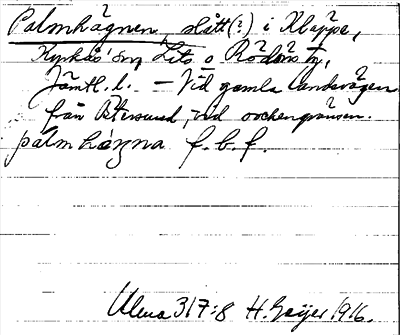 Palmhägnen, slått(?) i Kläppe,
Kyrkås sn, Lits o. Rödöns tg,
Jämtl. l. – Vid gamla landsvägen
från Östersund, vid sockengränsen.
palmhägna f. b. f.
Ulma 317:8 H. Geijer 1916.